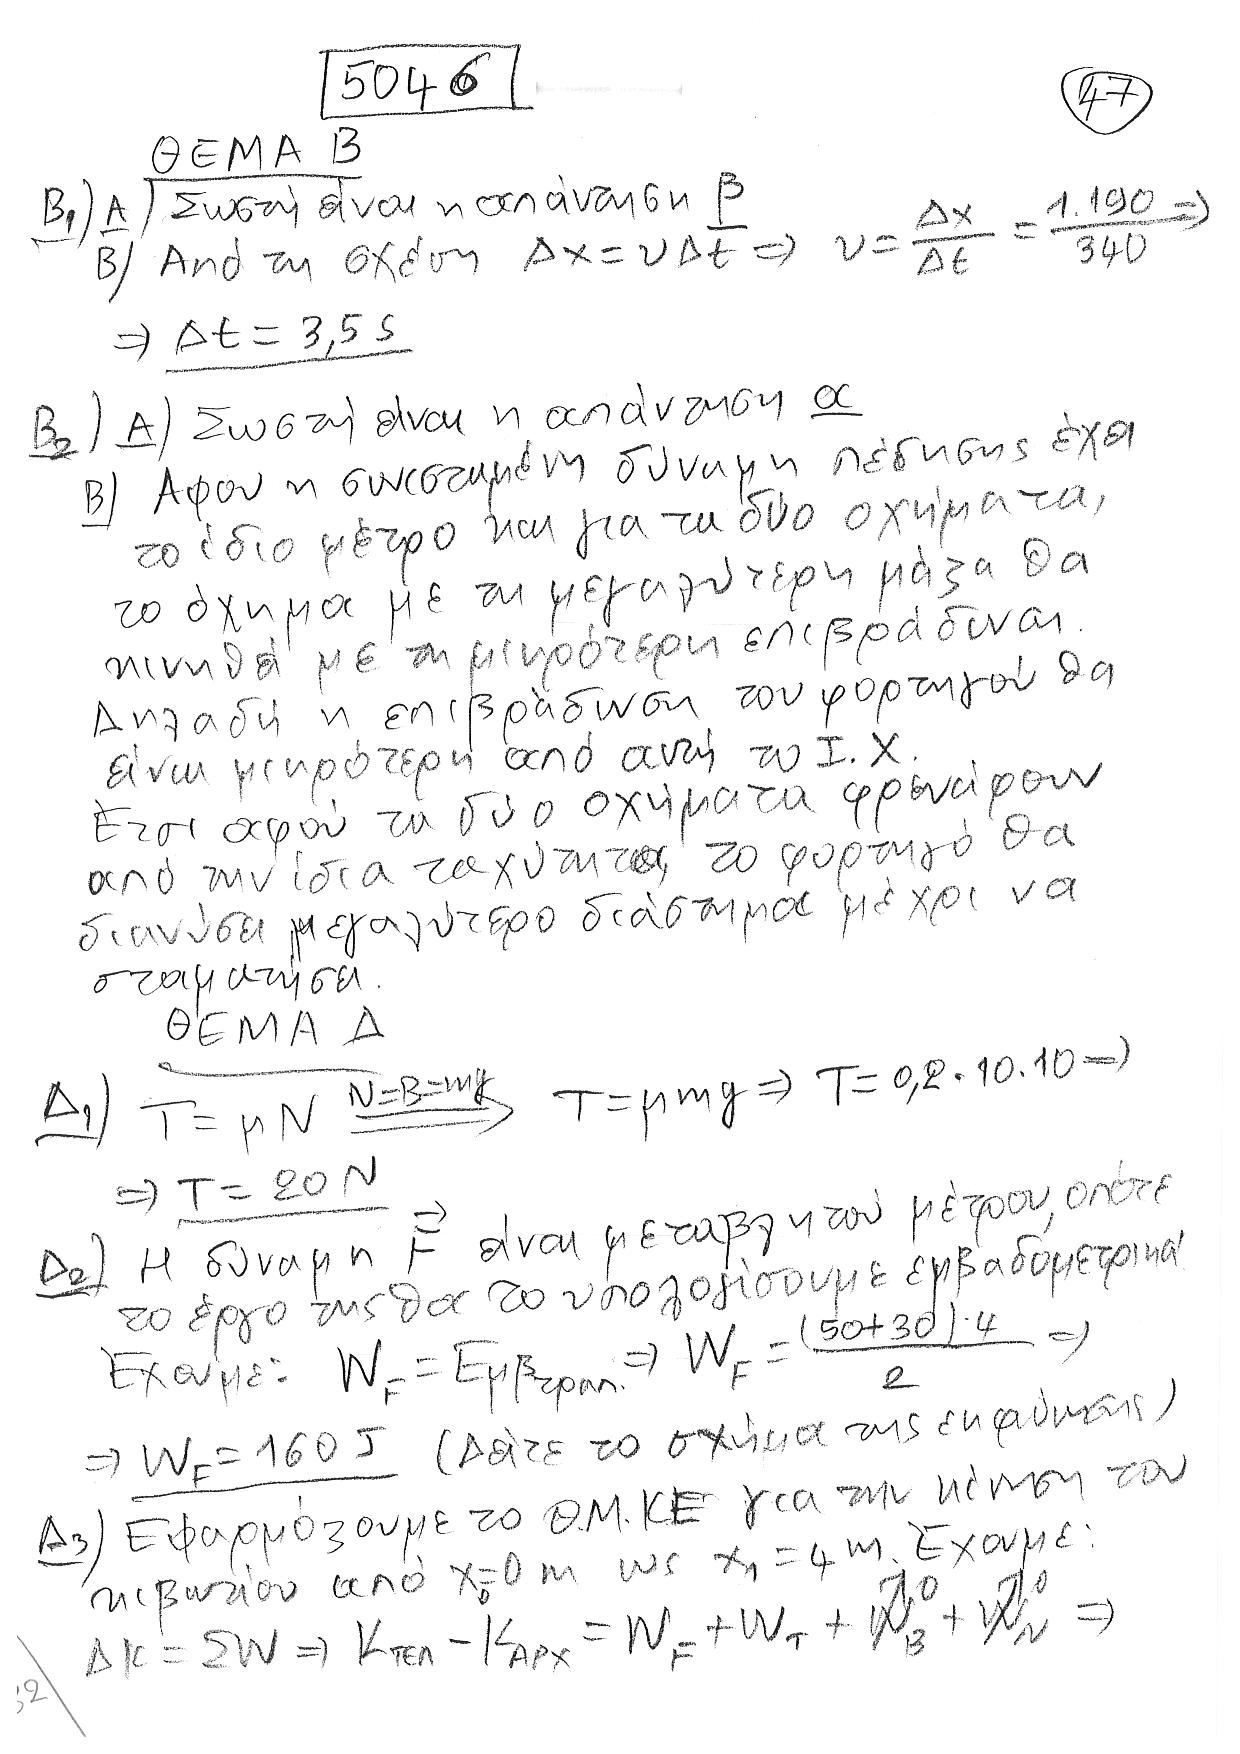 5046
47
ΘΕΜΑ Β
Β1) Α) Σωστή είναι η απάντηση β
Β) Από τη σχέση Δx = υ Δt ⇒ υ = Δx/Δt = 1.190/340 ⇒
⇒ Δt = 3,5 s
Β2) Α) Σωστή είναι η απάντηση α
Β) Αφού η συνισταμένη δύναμη πέδησης έχει
το ίδιο μέτρο και για τα δύο οχήματα,
το όχημα με τη μεγαλύτερη μάζα θα
κινηθεί με τη μικρότερη επιβράδυνση.
Δηλαδή η επιβράδυνση του φορτηγού θα
είναι μικρότερη από αυτή το Ι.Χ.
Έτσι αφού τα δύο οχήματα φρενάρουν
από την ίδια ταχύτητα, το φορτηγό θα
διανύσει μεγαλύτερο διάστημα μέχρι να
σταματήσει.
ΘΕΜΑ Δ
Δ1) T = μN N=B=mg ⇒ T = μmg ⇒ T = 0,2 · 10 · 10 ⇒
⇒ T = 20 N
Δ2) Η δύναμη F⃗ είναι μεταβλητού μέτρου, οπότε
το έργο της θα το υπολογίσουμε εμβαδομετρικά
Έχουμε: W_F = Εμβτραπ. ⇒ W_F = (50+30)·4/2 ⇒
⇒ W_F = 160 J (Δείτε το σχήμα της εκφώνησης)
Δ3) Εφαρμόζουμε το Θ.Μ.ΚΕ για την κίνηση του
κιβωτίου από x₀=0 m ως x₁ = 4 m. Έχουμε:
ΔΚ = ΣW ⇒ Κ_ΤΕΛ − Κ_ΑΡΧ = W_F + W_T + W_B⁰ + W_N⁰ ⇒
32